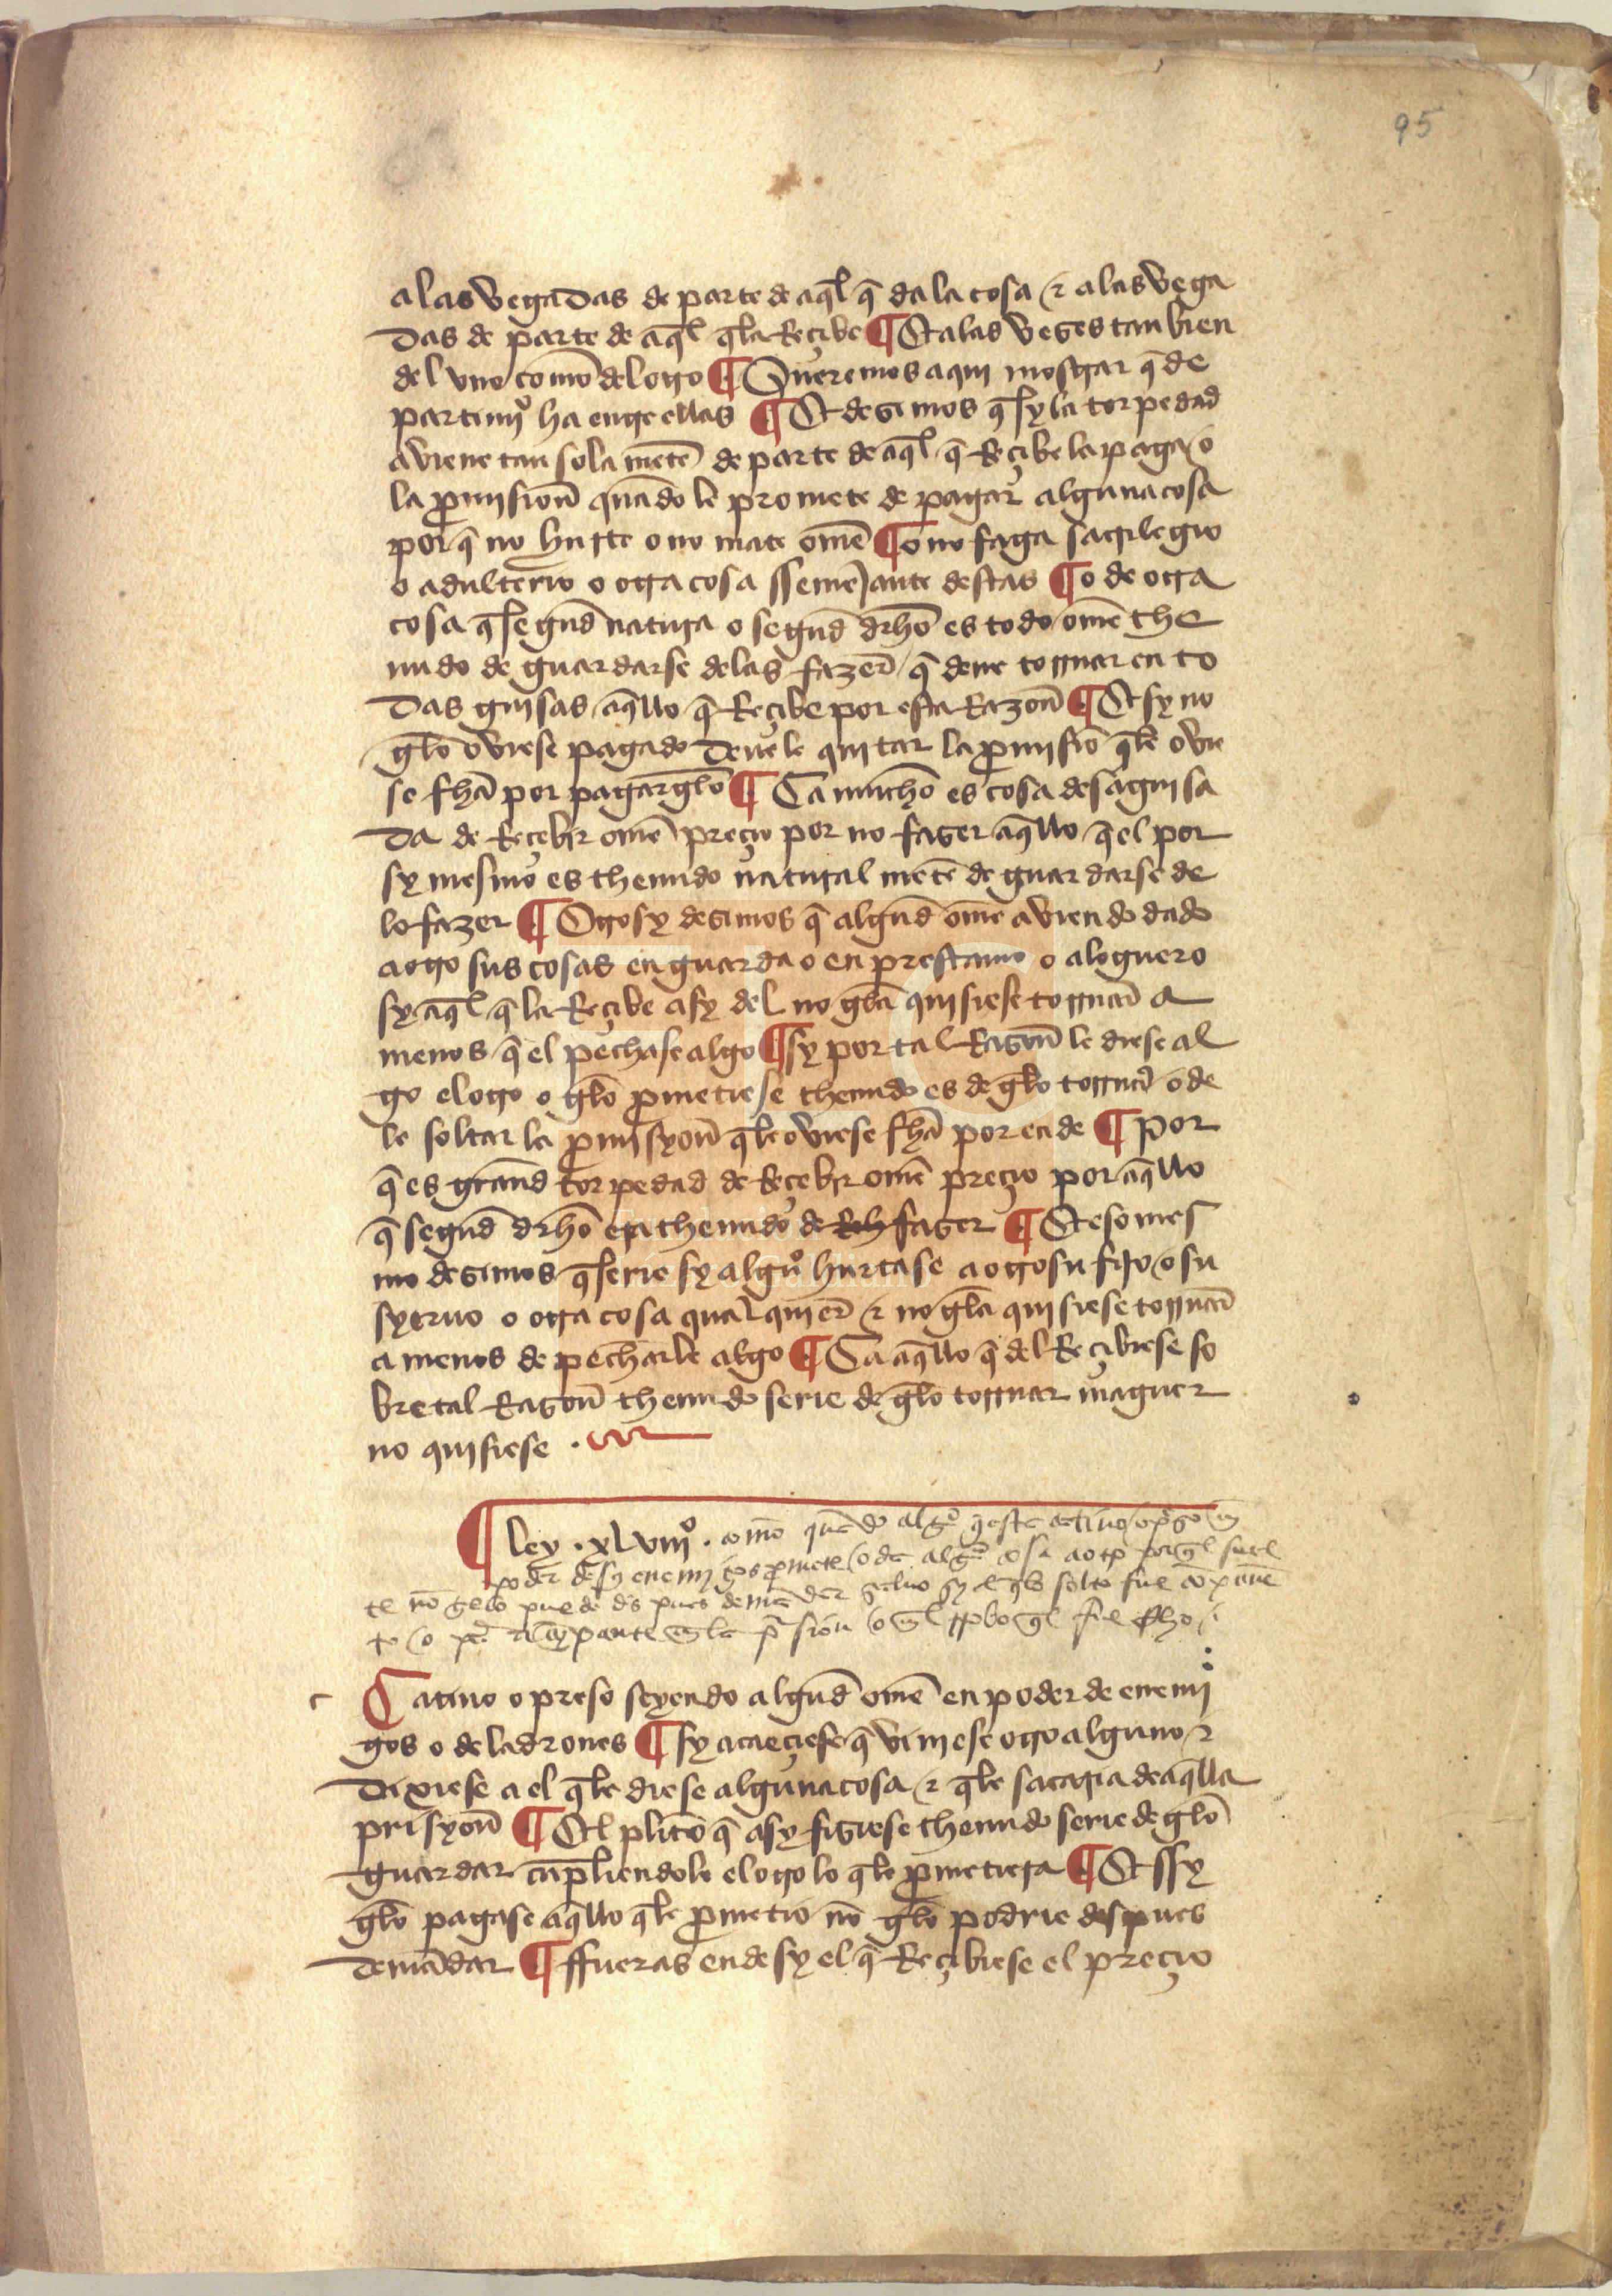 95
a las vegadas de parte de aq̃l q̃ da la cosa ⁊ a las vega
das de parte de aq̃l q̃la Reçibe ¶ Et a las veses tan bien
del vno como del otro ¶ Queremos aqui mostrar q̃ de
partimjº ha entre ellas ¶ Et desimos q̃ sy la torpedad
aviene tan sola mẽte de parte de aq̃l q̃ Reçibe la paga o
la p̃misiõn quãdo le promete de pagar alguna cosa
por q̃ no hurte o no mate om̃e ¶ o no faga sacrilegio
o adulterio o otra cosa ssemejante destas ¶ o de otra
cosa q̃ segũd natura o segũd dr̃ho es todo om̃e the
nudo de guardarse de las fazer q̃ deue tornar en to
das guisas aq̃llo q̃ Reçibe por esta Razõn ¶ Et sy no
gelo oviese pagado deuele quitar la p̃misiõ q̃le ovie
se fh̃a por pagargelo ¶ Ca mucho es cosa desaguisa
da de Reçebir om̃e preçio por no faser aq̃llo q̃ el por
sy mesmo es thenudo natural mẽte de guardarse de
lo fazer ¶ Otrosy desimos q̃ algũd om̃e aviendo dado
a otro sus cosas en guarda o en prestamo o a loguero
sy aq̃l q̃ la Reçibe asy del no gela quisiese tornar a
menos q̃ el pechase algo ¶ sy por tal Rasõn le diese al
go el otro o gelo p̃metiese thenudo es de gelo tornar o de
le soltar la p̃misyõn q̃le oviese fh̃a por ende ¶ por
q̃ es grand torpedad de Reçebir om̃e preçio por aq̃llo
q̃ segũd dr̃ho era thenudo de faser ¶ Et eso mes
mo desimos q̃ serie sy algũo hurtase a otro su fijo o su
syeruo o otra cosa qual quier ⁊ no gela quisiese tornar
a menos de pecharle algo ¶ Ca aq̃llo q̃ del Reçibiese so
bre tal Rasõn thenudo serie de gelo tornar maguer
no quisiese
¶ ley . xlviijº . como quãdo algº q̃ este catiuo o p̃so en
poder de sus enemigos p̃mete o da algª cosa a otº por q̃l suel
te nõ gelo puede des pues demãdar saluo sy
Catiuo o preso seyendo algũd om̃e en poder de enemj
gos o de ladrones ¶ sy acaeçiese q̃ vinjese otro alguno ⁊
dixiese a el q̃le diese alguna cosa ⁊ q̃le sacaria de aq̃lla
prisyõn ¶ El plito q̃ asy fisiese thenudo serie de gelo
guardar cũpliendole el otro lo q̃le p̃metiera ¶ Et ssy
gelo pagase aq̃llo q̃le p̃metio nõ gelo podrie despues
demãdar ¶ ffueras ende sy el q̃ Reçibiese el preçio